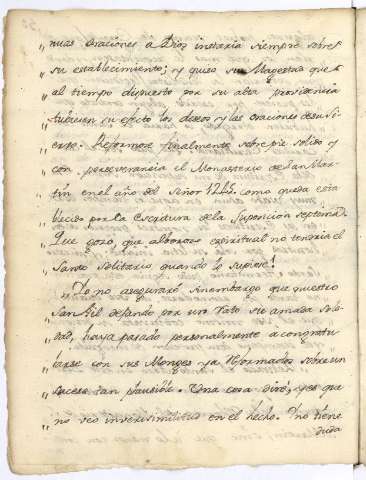 nuas oraciones a Dios instaria siempre sobre
su establecimiento; y quiso su Magestad que
al tiempo dispuesto por su alta providencia
tubiesen su efecto los deseos y las oraciones de su Si
ervo. Reformose finalmente sobre pie solido y
con perseverancia el Monasterio de San Mar-
tin en el año del Señor 1245. como queda esta
blecido por la Escritura de la Suposicion septima.
Que gozo, que alborozo espiritual no tendria el
Santo Solitario quando lo supiese!
Yo no aseguraré sinembargo que nuestro
San Gil dejando por un rato su amada sole
dad, haya pasado personalmente a congratu
larse con sus Monges ya reformados sobre un
suceso tan plausible. Una cosa diré, y es que
no veo inverisimilitud en el hecho. No tiene
duda